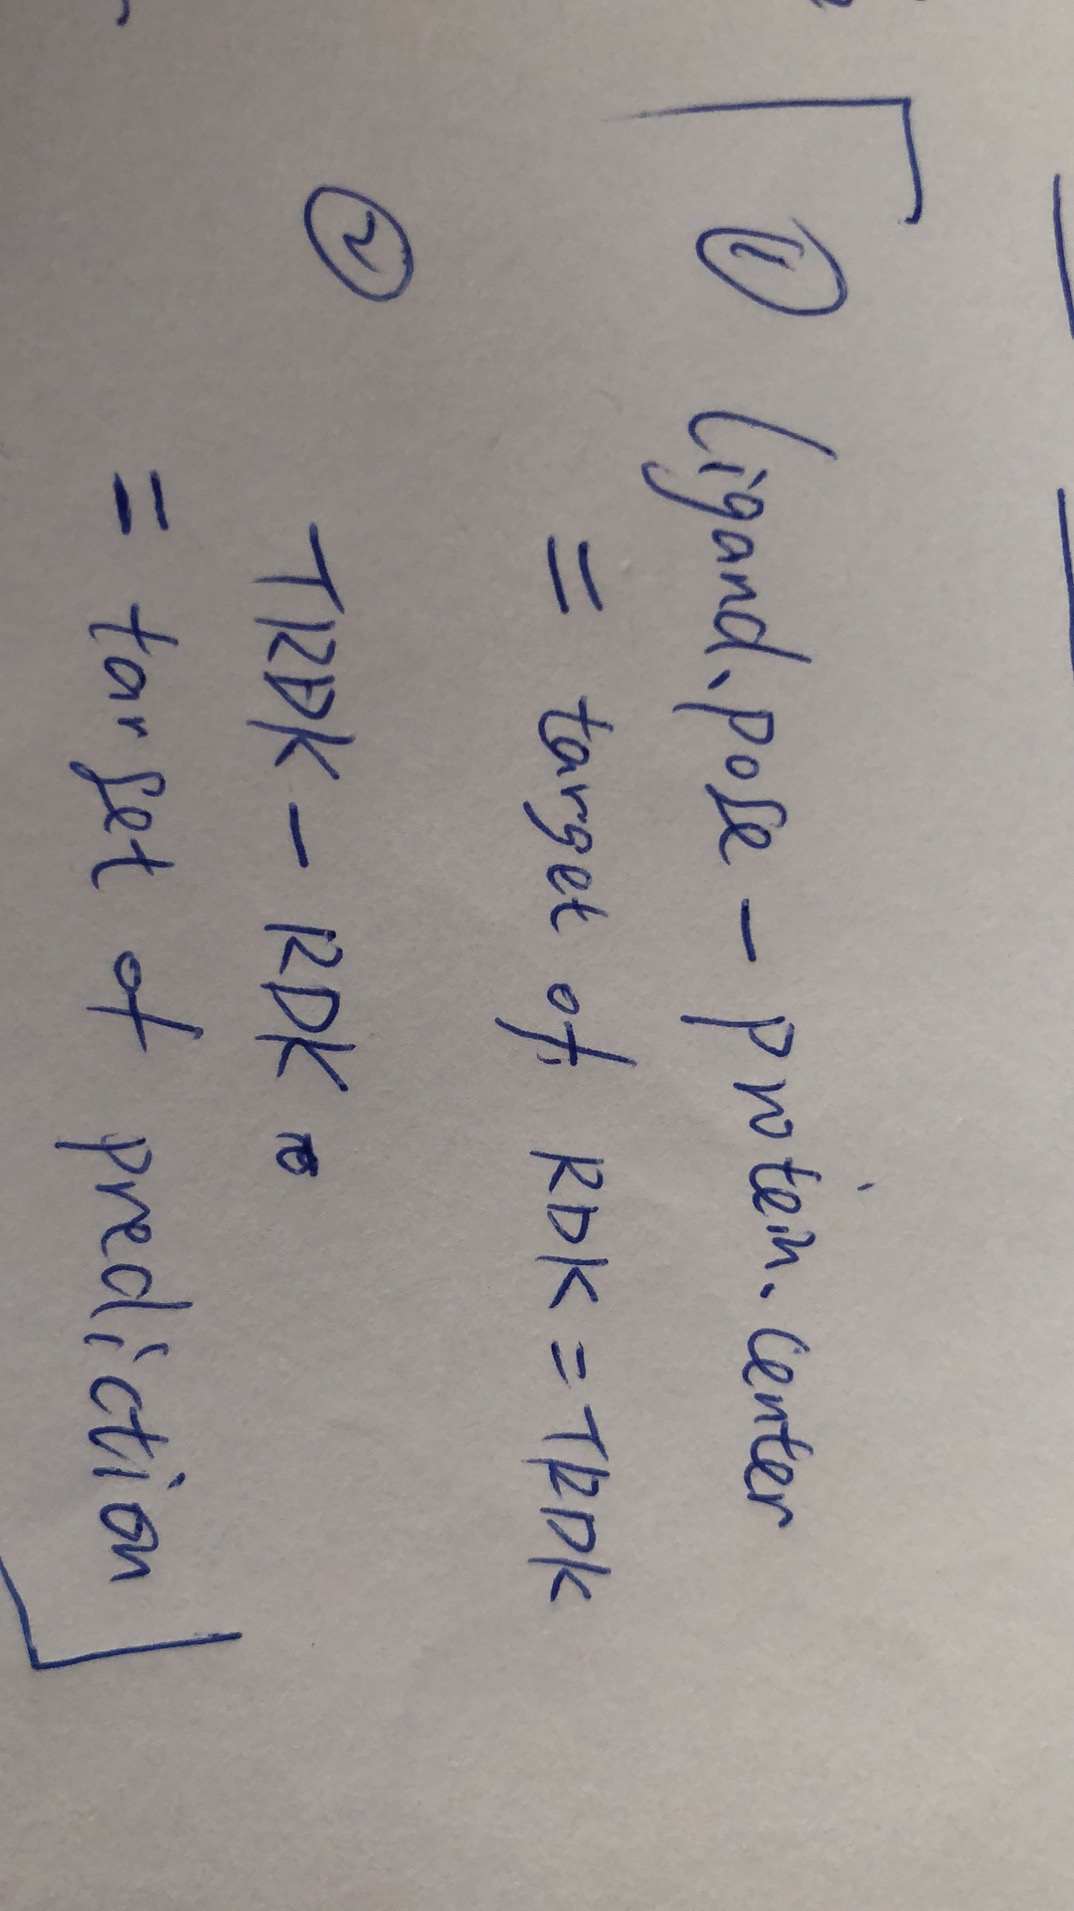 ① Ligand.pose - protein.center
= target of RDK = TRDK
② TRDK - RDK
= target of prediction